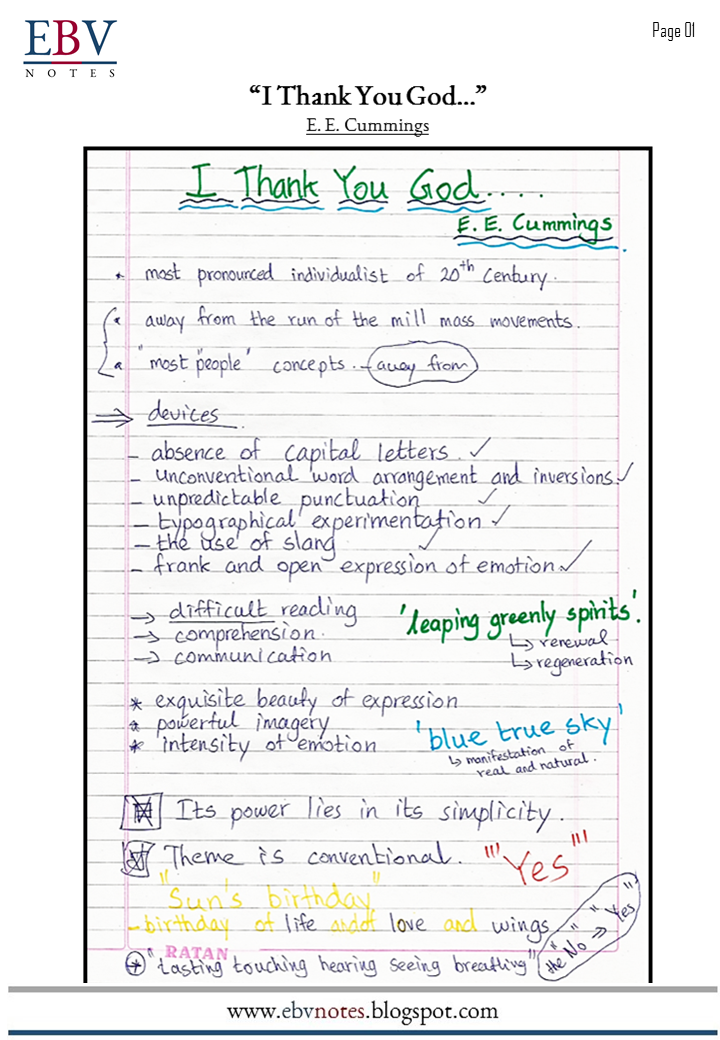 EBV
NOTES
Page 01
“I Thank You God...”
E. E. Cummings
I Thank You God....
E. E. Cummings
* most pronounced individualist of 20th Century.
* away from the run of the mill mass movements.
* "most "people' concepts. - away from
⇒ devices
- absence of capital letters. ✓
- unconventional word arrangement and inversions ✓
- unpredictable punctuation ✓
- typographical experimentation ✓
- the use of slang ✓
- frank and open expression of emotion ✓
→ difficult reading
→ comprehension.
→ communication
'leaping greenly spirits'.
↳ renewal
↳ regeneration
* exquisite beauty of expression
* powerful imagery
* intensity of emotion
'blue true sky'
↳ manifestation of
real and natural.
Its power lies in its simplicity.
Theme is conventional.
"'Yes"'
"Sun's birthday"
- birthday of life and of love and wings
"the No" → "Yes"
RATAN
* "tasting touching hearing seeing breathing"
www.ebvnotes.blogspot.com